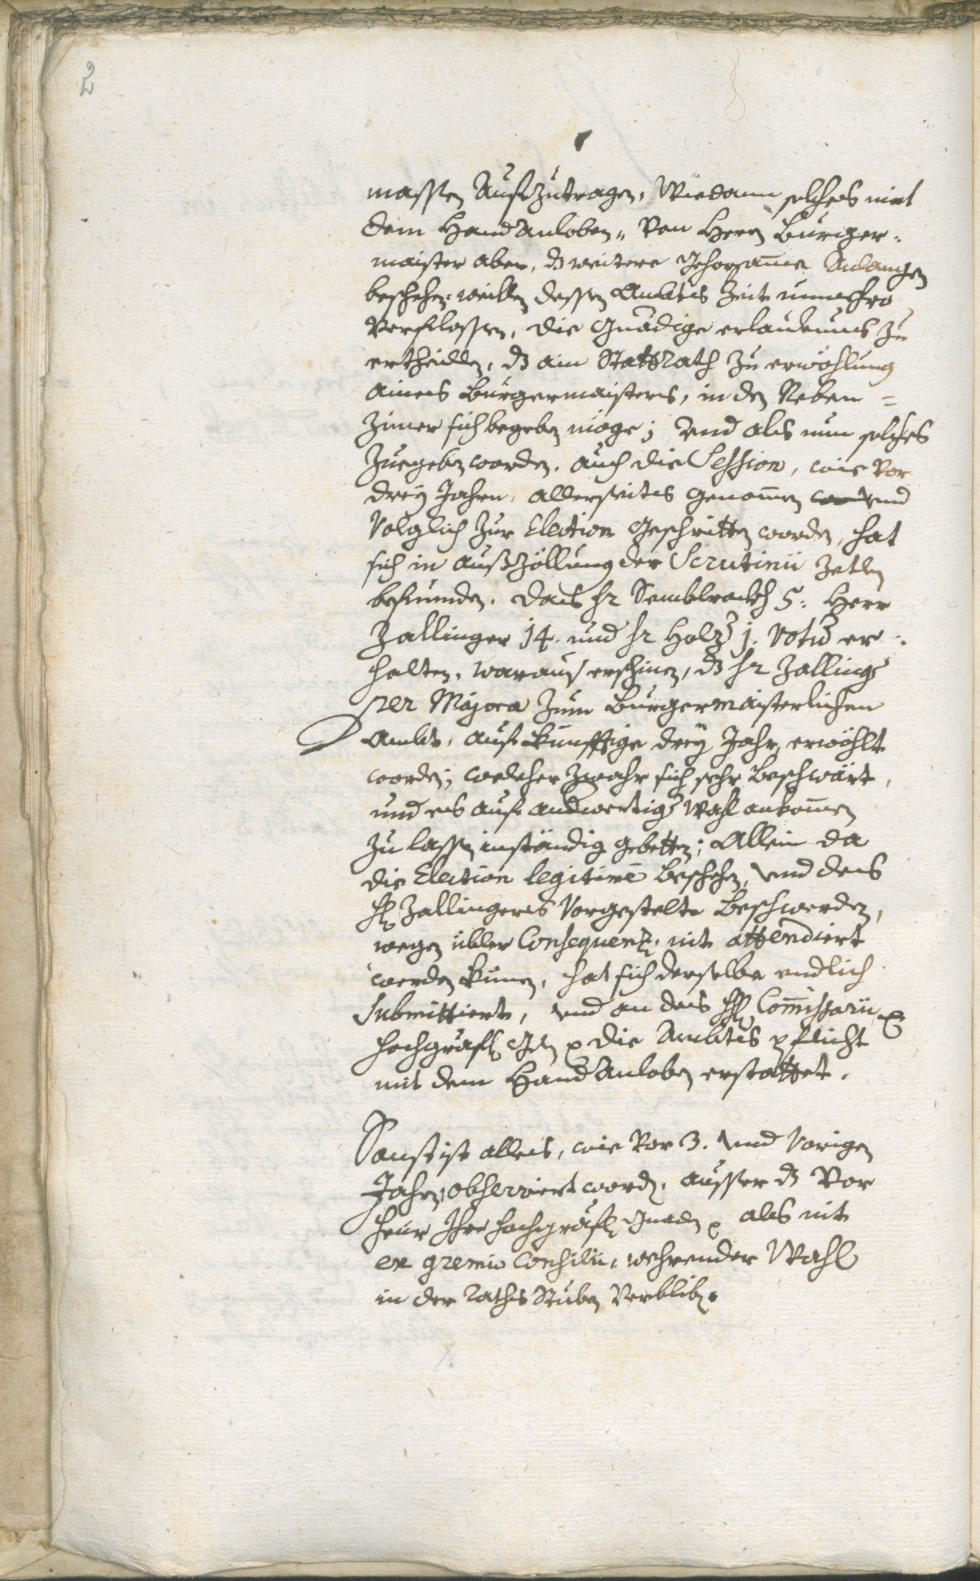 2
massen Außzutragen, Wiedann solches mit
dem Handanloben, Von Herrn Burger-
maister aber, dz weitere gehorsame Anlangen
beschehen: weillen dessen Ambts Zeit nunmehro
Verflossen, die Gnädige erlaubnus zu
ertheillen, dz ain StattRath zu erwöhlung
aines Burgermaisters, in den Neben =
Zimer sich begeben möge; Vnd als nun solches
Zuegeben worden, auch die Session, wie Vor
dreÿ Jahren, allerseits genomen vnd
Volglich Zur Election geschritten worden, hat
sich in außzöllung der Scrutinii Zetlen
befunden, das hr Semblrockh 5: Herr
Zallinger 14. und hr Holz 1. Vota er-
halten, waraus erschinen, dz hr Zallinger
per Majora Zum Burgermaisterlichen
Ambt, auf künfftige dreÿ Jahr, erwöhlt
worden; welcher Zwahr sich sehr beschwärt,
und es auf andwertige Wahl ankomen
zu lassen inständig gebetten; Allein da
die Election legitimè beschehen, vnd des
H: Zallingers Vorgestelte beschwerden,
wegen übler Consequenz, nit attendiert
werden könen, hat sich derselbe endlich
Submittiert, vnd an des H: Commissarii
hochgräfl: Gn: die Ambts pflicht
mit dem Handanloben erstattet.
Sonst ist alles, wie Vor 3. vnd Vorigen
Jahren, observiert worden, ausser dz Vor
heür Ihre hochgräfl: Gnaden als nit
ex gremio Consilii, wehrender Wahl
in der Raths Stuben Verbliben.